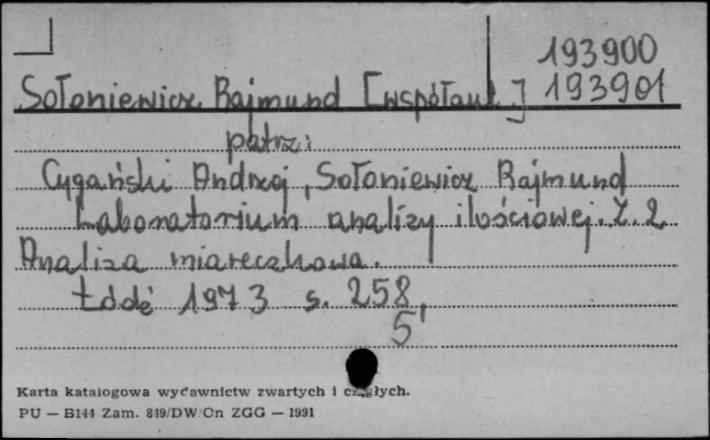 193900
Sołoniewicz Rajmund [współaut.] 193901
patrz:
Cygański Andrzej, Sołoniewicz Rajmund
Laboratorium analizy ilościowej. Z. 2
Analiza miareczkowa.
Łódź 1973 s. 258,
5'
Karta katalogowa wydawnictw zwartych i ciągłych.
PU — B144 Zam. 849/DW/On ZGG — 1991